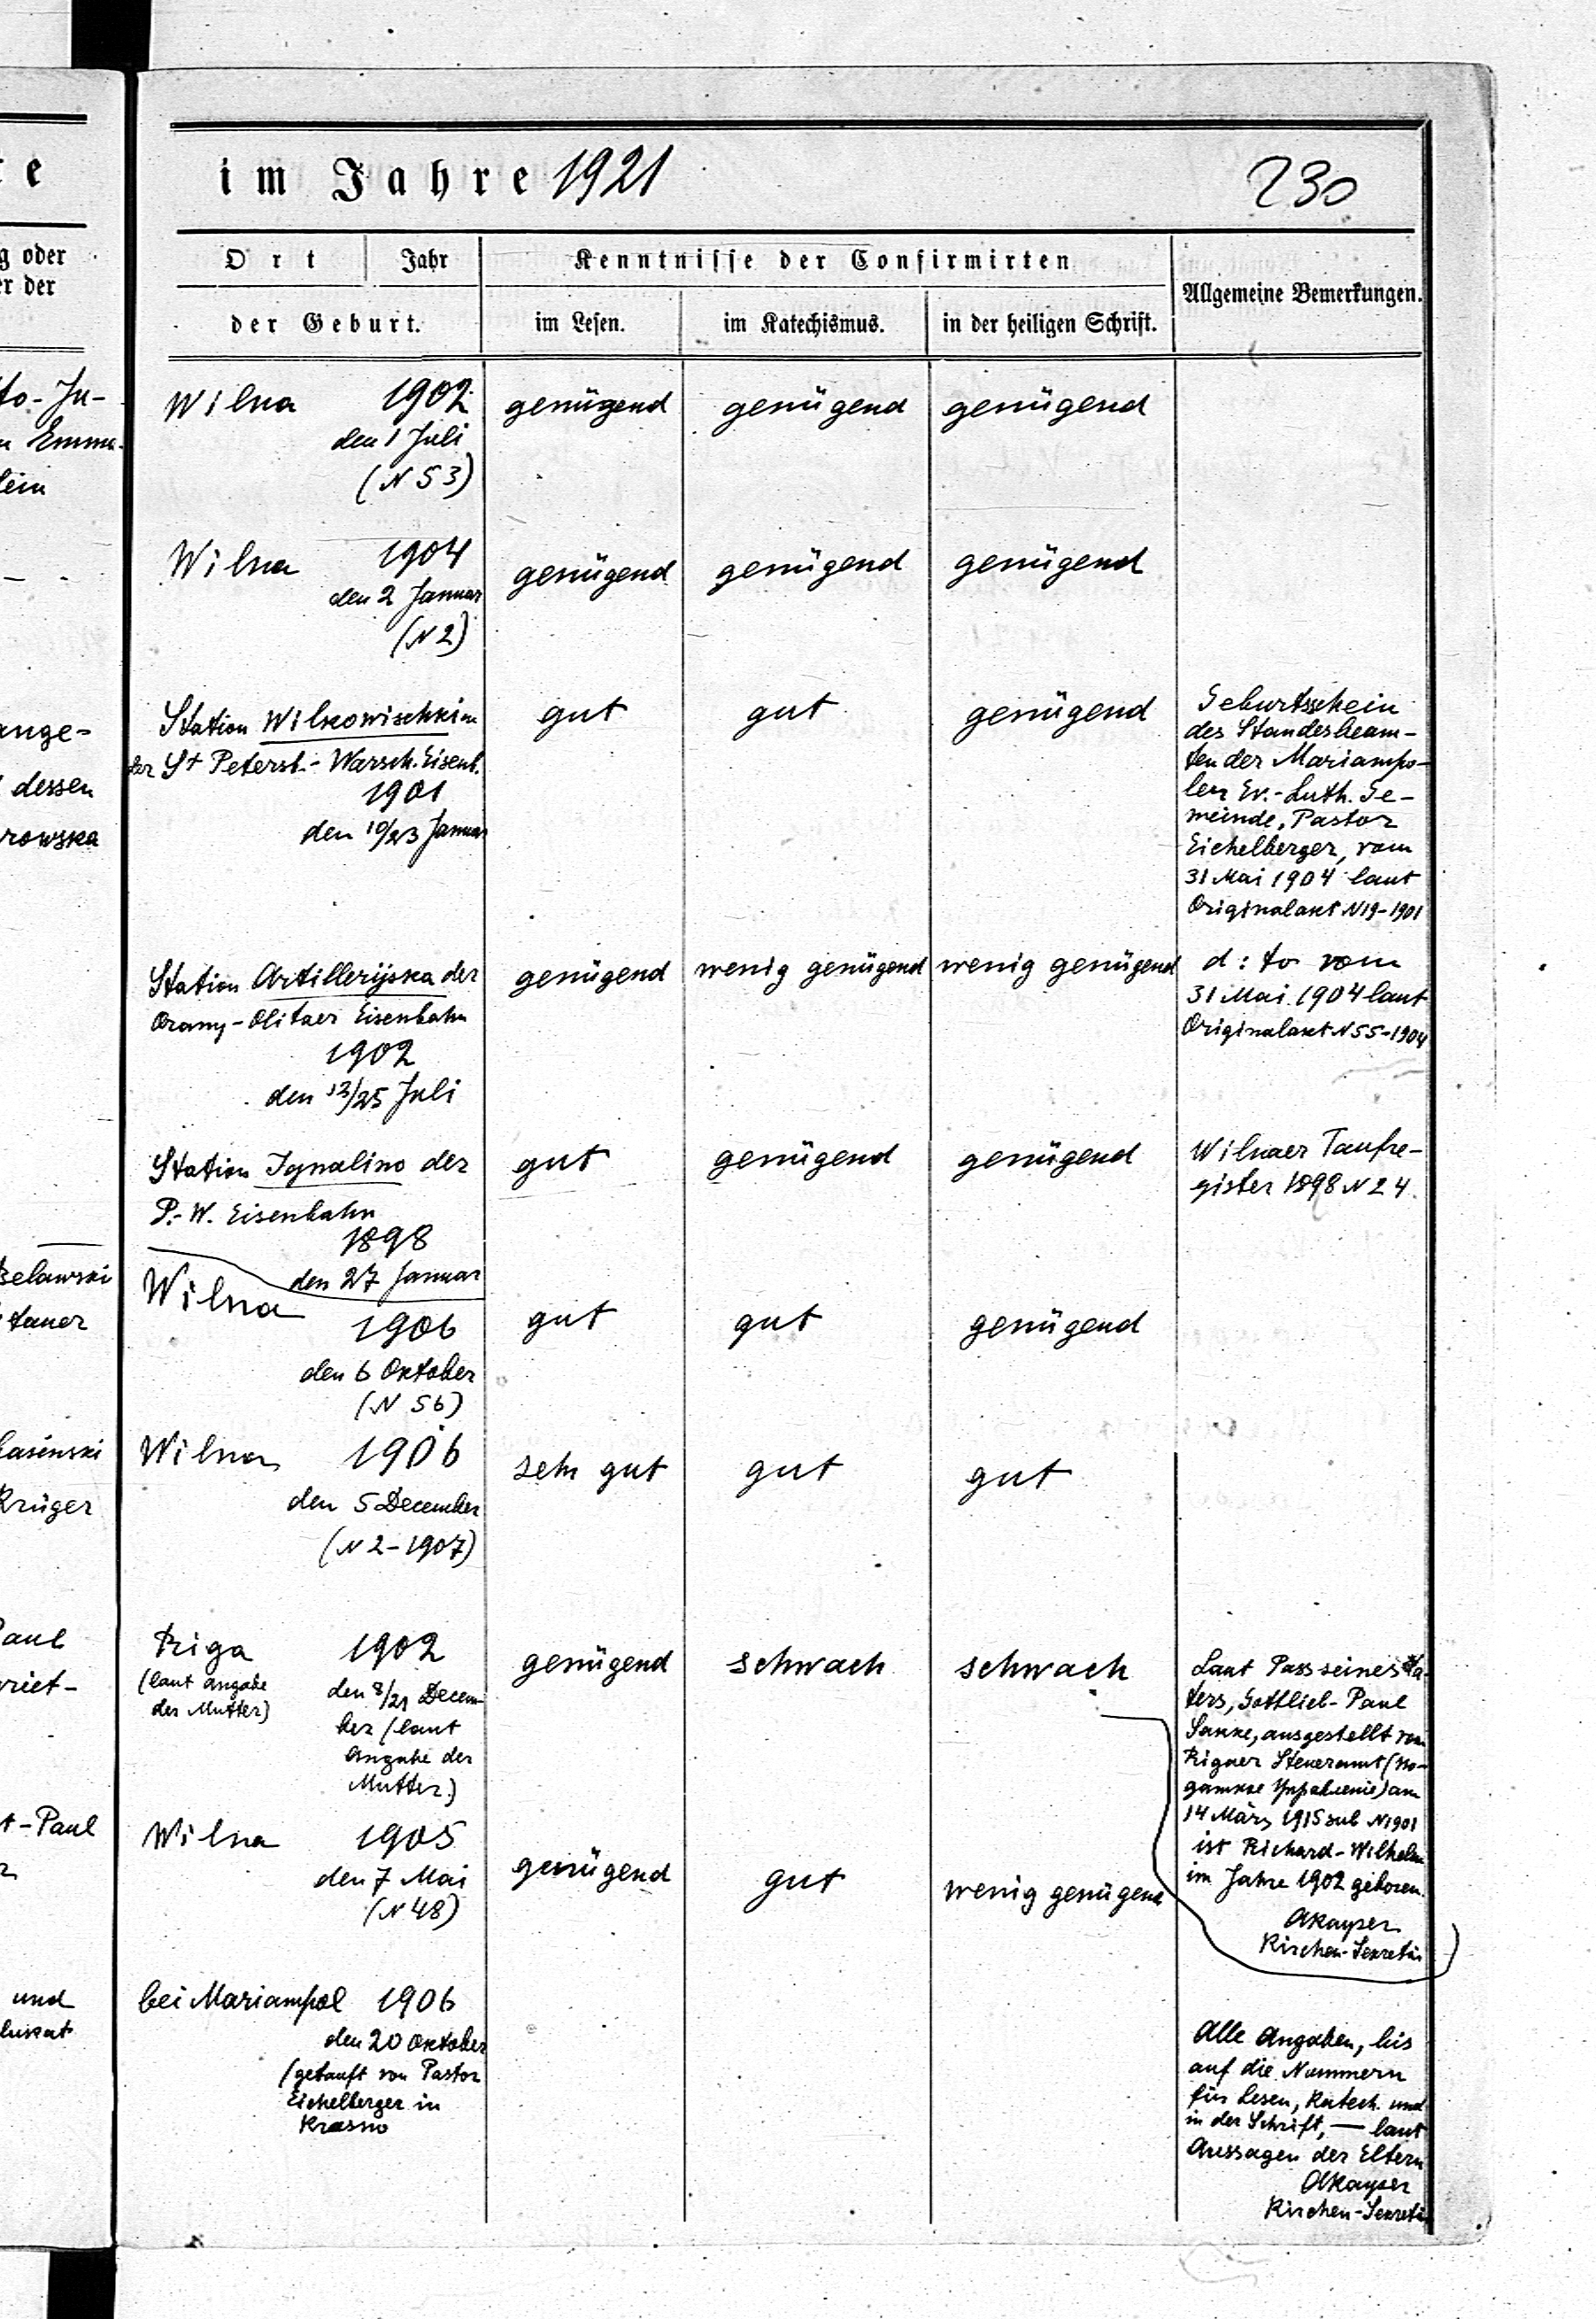 e
im Jahre 1921
230
g oder
er der
Ort
Jahr
der Geburt.
Kenntnisse der Confirmirten
im Lesen.
im Katechismus.
in der heiligen Schrift.
Allgemeine Bemerkungen.
to-Ju-
n Emma-
lein
Wilna 1902
den 1 Juli
(N 53)
genügend
genügend
genügend
Wilna 1904
den 2 Januar
(N 2)
genügend
genügend
genügend
ange-
dessen
rowska
Station Wilkowischki an
der St Petersb.- Warsch. Eisenb.
1901
den 10/23 Januar
gut
gut
genügend
Geburtsschein
des Standesbeam-
ten der Mariampo-
ler Ev.-Luth. Ge-
meinde, Pastor
Eichelberger, vom
31 Mai 1904 laut
Originalakt N19-1901
Station Artillerijska der
Orany-Olitaer Eisenbahn
1902
den 12/25 Juli
genügend
wenig genügend
wenig genügend
d:to vom
31 Mai 1904 laut
Originalakt N55-1904
Station Ignalino der
P.-W. Eisenbahn
1898
den 27 Januar
gut
genügend
genügend
Wilnaer Taufre-
gister 1898 N 24.
selawski
tauer
Wilna
1906
den 6 Oktober
(N 56)
gut
gut
genügend
lasinski
Krüger
Wilna 1906
den 5 December
(N 2-1907)
sehr gut
gut
gut
Paul
riet-
Riga 1902
(laut Angabe
der Mutter)
den 8/21 Decem-
ber (laut
Angabe der
Mutter.)
genügend
schwach
schwach
Laut Pass seines Va-
ters, Gottlieb-Paul
Sanke, ausgestellt vom
Rigaer Steueramt (По-
датное Управленіе) am
14 März 1915 sub N1901
ist Richard-Wilhelm
im Jahre 1902 geboren.
AKayser
Kirchen-Sekretär
t-Paul
Wilna 1905
den 7 Mai
(N 48)
genügend
gut
wenig genügend
und
lukat
bei Mariampol 1906
den 20 Oktober
(getauft von Pastor
Eichelberger in
Krasno
Alle Angaben, bis
auf die Nummern
für Lesen, Katech. und
in der Schrift, — laut
Aussagen der Eltern
AKayser
Kirchen-Sekretär